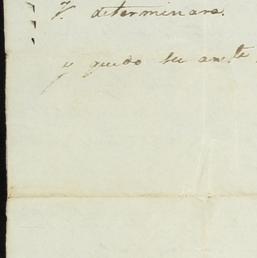 V. determinara.
y quedo su am.te